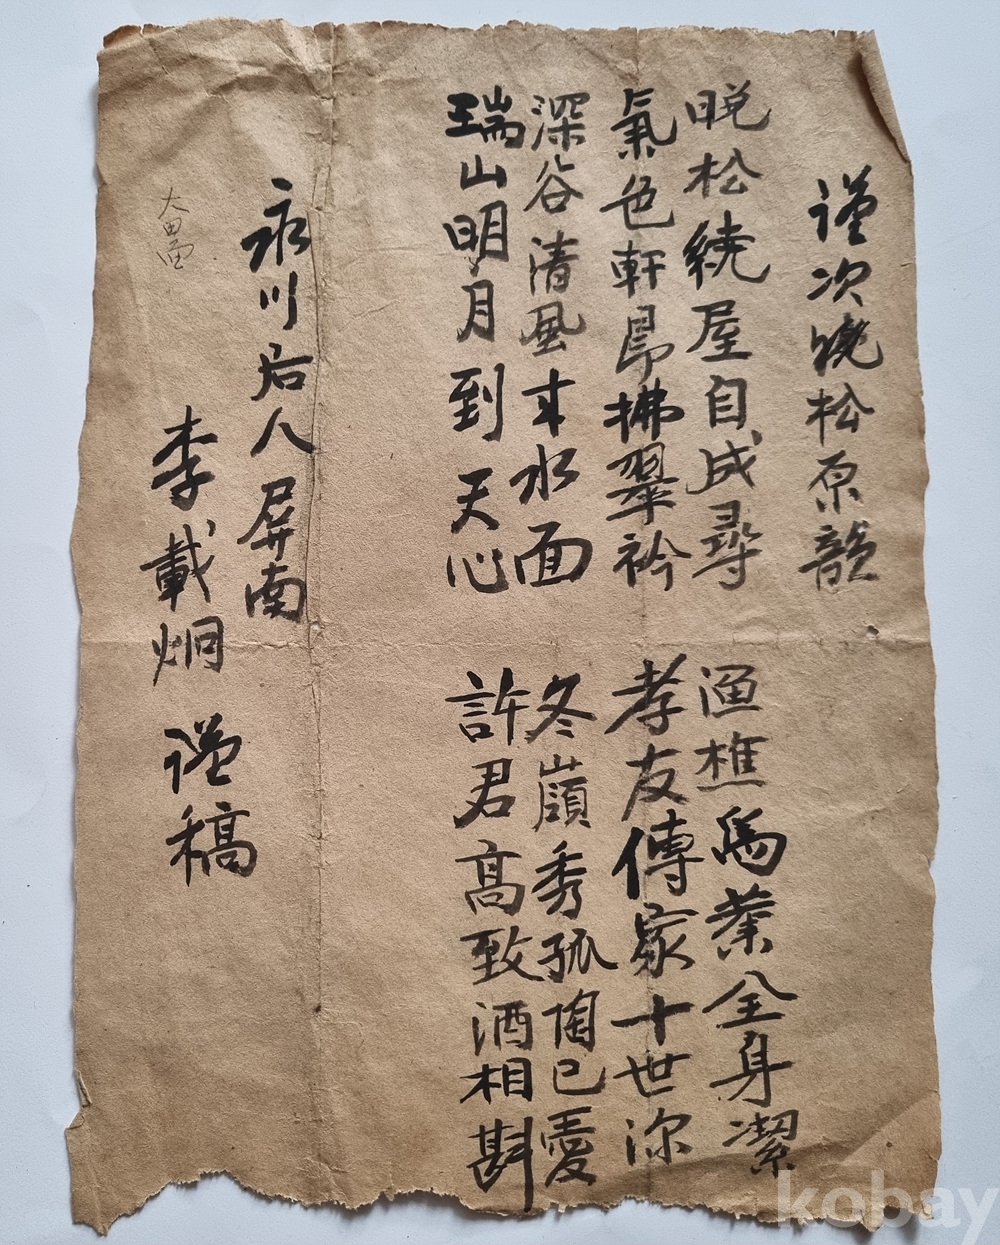 謹次晩松原韻
晩松繞屋自成尋 漁樵爲業全身潔
氣色軒昻拂翠衿 孝友傳家十世深
深谷清風来水面 冬嶺秀孤陶已愛
瑞山明月到天心 許君高致酒相斟
永川后人 屛南
李載炯 謹稿
大田面
kobay